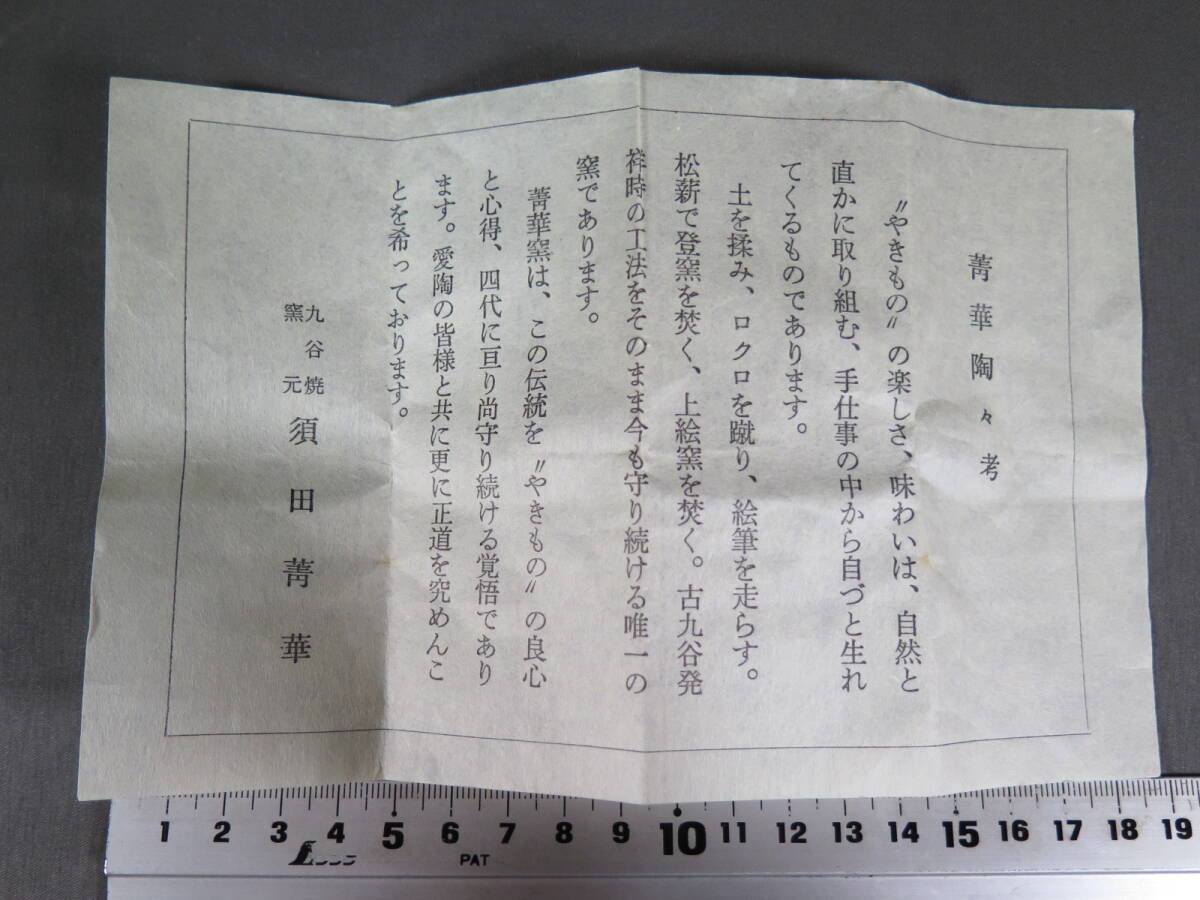 菁華陶々考
〝やきもの〟の楽しさ、味わいは、自然と
直かに取り組む、手仕事の中から自づと生れ
てくるものであります。
土を揉み、ロクロを蹴り、絵筆を走らす。
松薪で登窯を焚く、上絵窯を焚く。古九谷発
祥時の工法をそのまま今も守り続ける唯一の
窯であります。
菁華窯は、この伝統を〝やきもの〟の良心
と心得、四代に亘り尚守り続ける覚悟であり
ます。愛陶の皆様と共に更に正道を究めんこ
とを希っております。
九谷焼
窯元
須田菁華
1 2 3 4 5 6 7 8 9 10 11 12 13 14 15 16 17 18 19
PAT